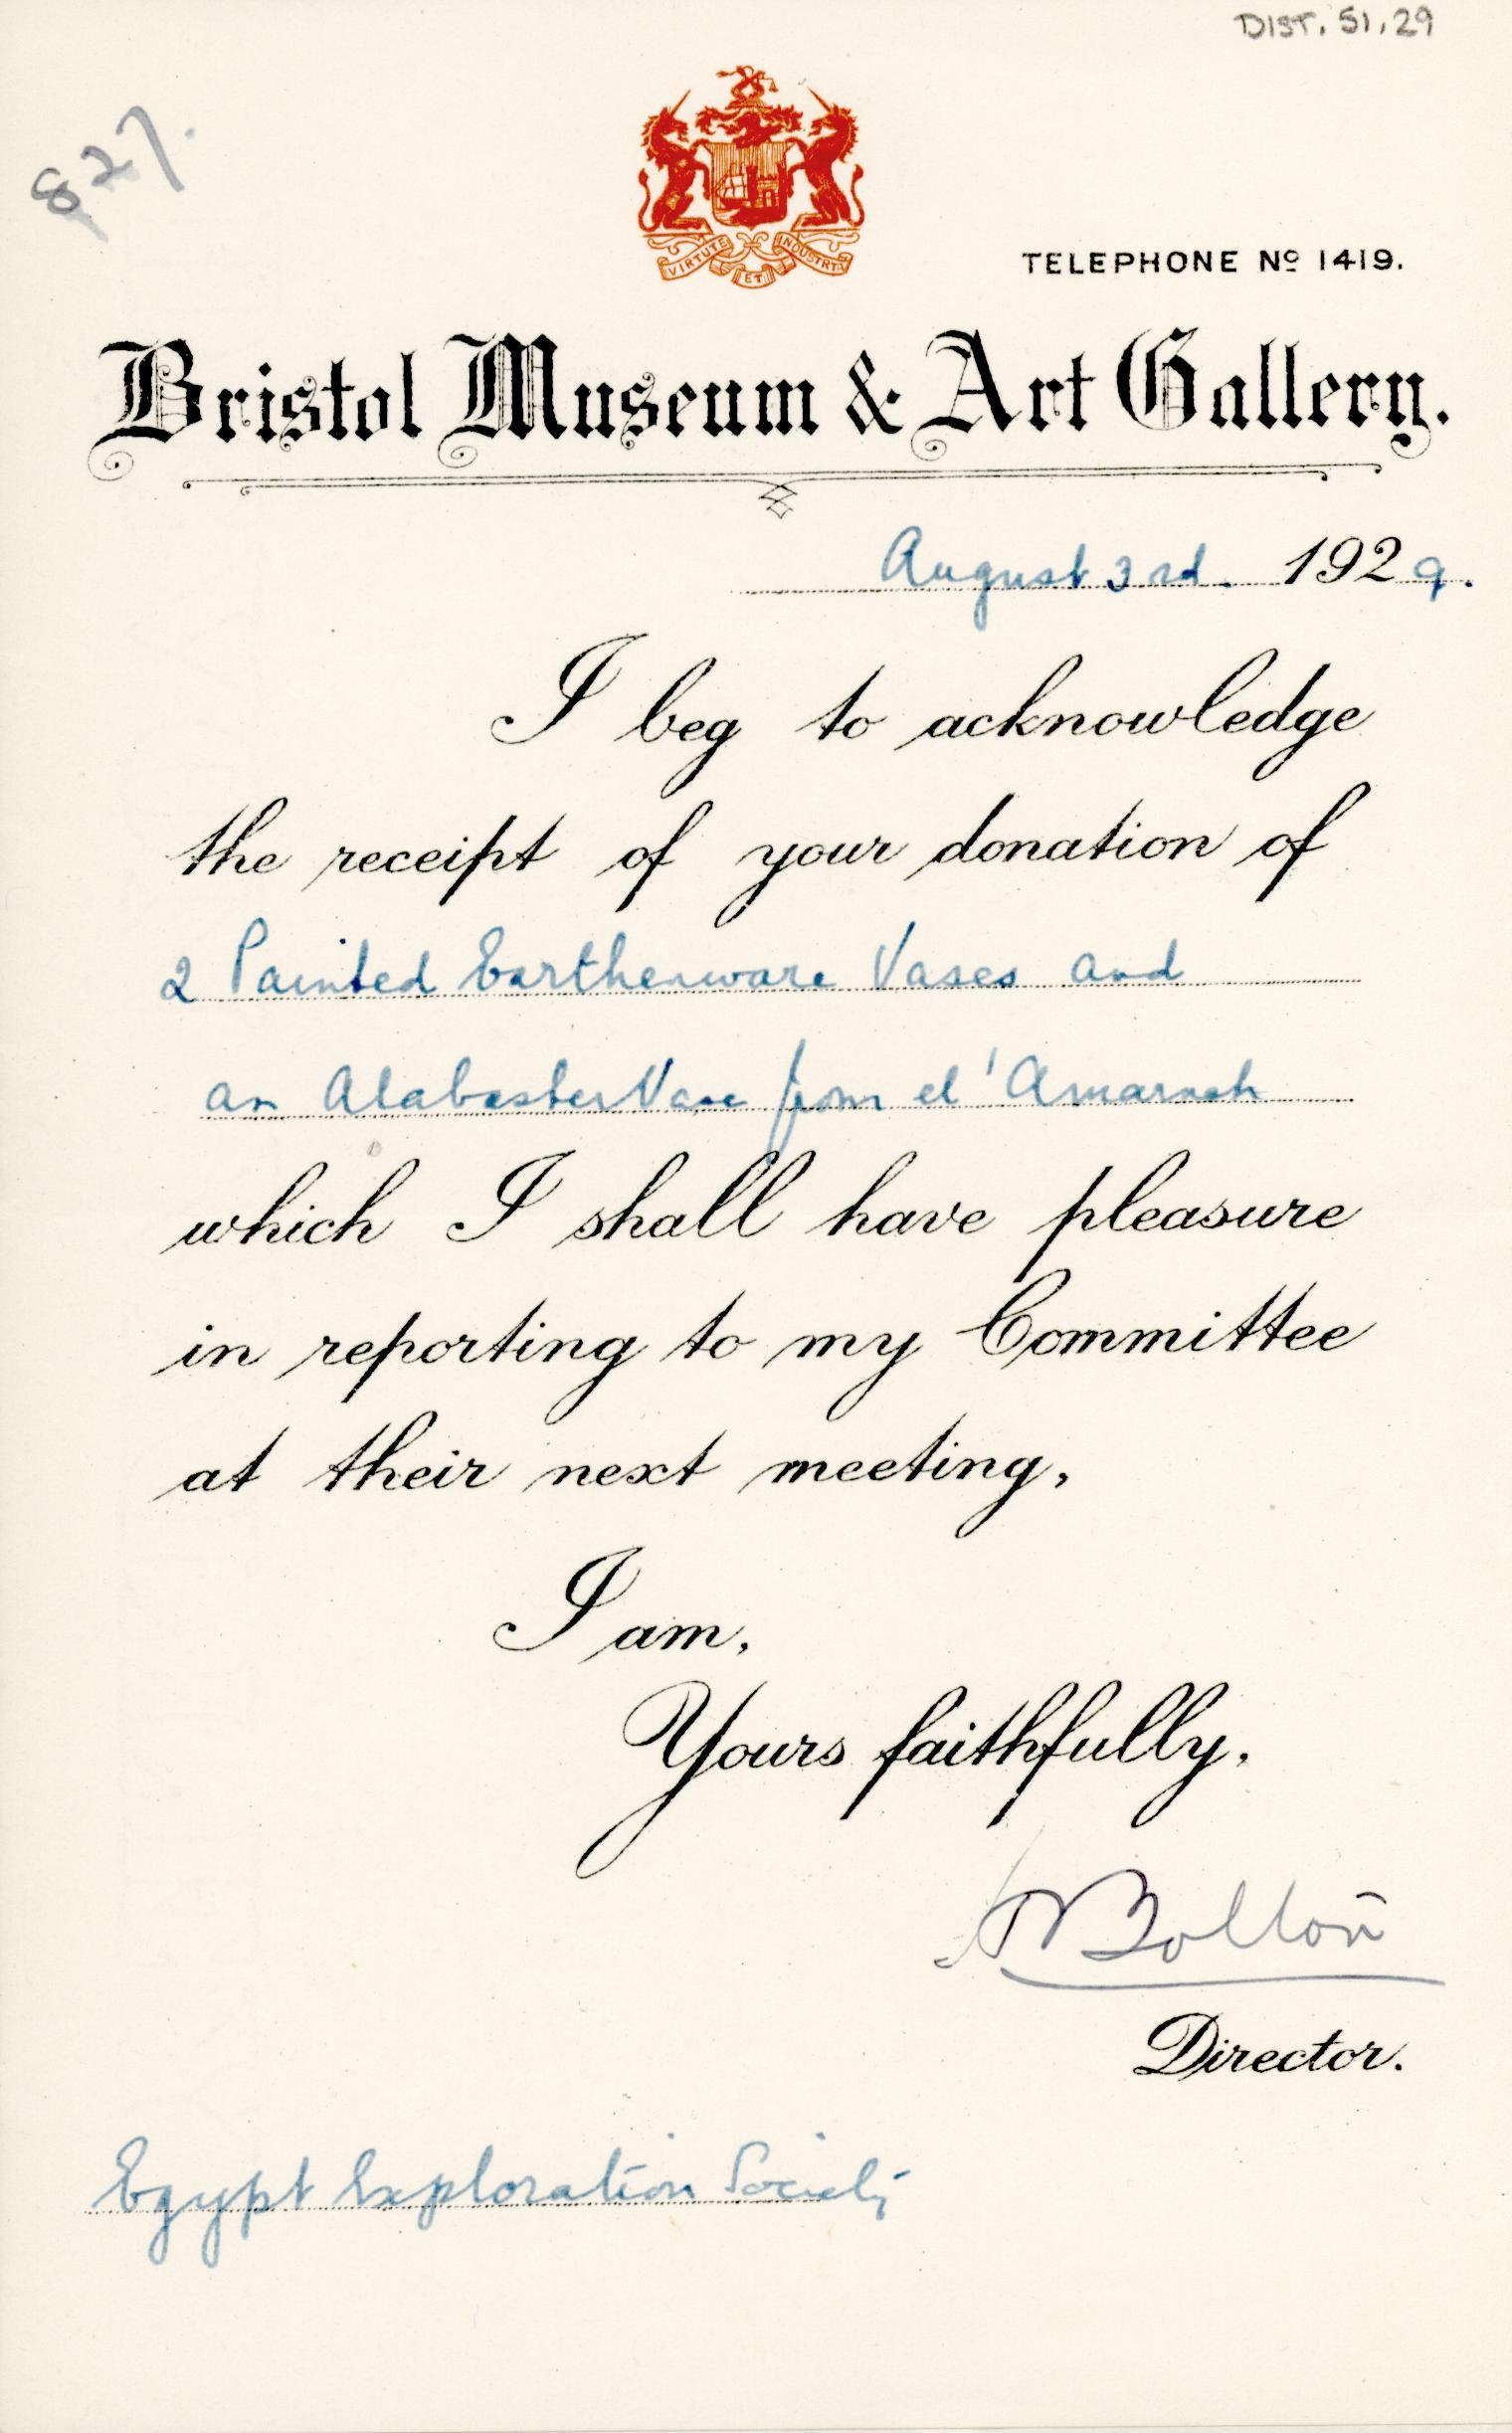 DIST. 51,29
827.
VIRTUTE ET INDUSTRIA
TELEPHONE Nº 1419.
Bristol Museum & Art Gallery.
August 3rd. 1929.
I beg to acknowledge
the receipt of your donation of
2 Painted Earthenware Vases and
an Alabaster Vase from el 'Amarnah
which I shall have pleasure
in reporting to my Committee
at their next meeting,
I am,
Yours faithfully,
Bolton
Director.
Egypt Exploration Society